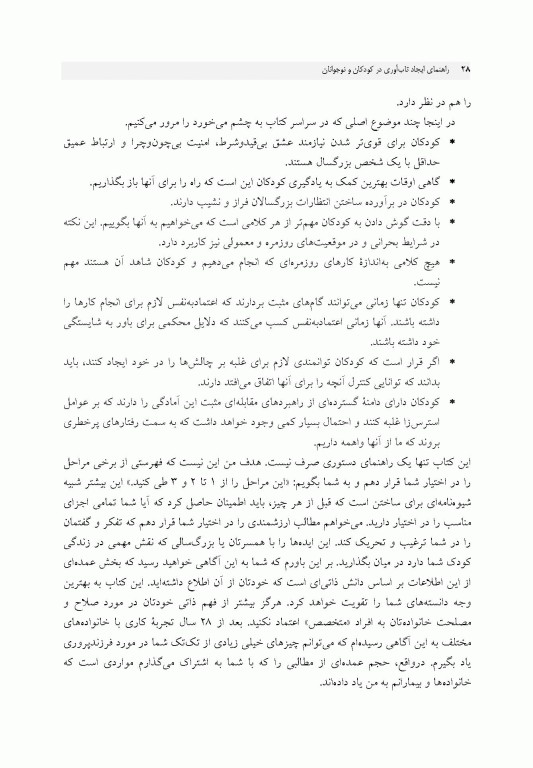 ۲۸ راهنمای ایجاد تاب‌آوری در کودکان و نوجوانان
را هم در نظر دارد.
در اینجا چند موضوع اصلی که در سراسر کتاب به چشم می‌خورد را مرور می‌کنیم.
* کودکان برای قوی‌تر شدن نیازمند عشق بی‌قیدوشرط، امنیت بی‌چون‌وچرا و ارتباط عمیق
حداقل با یک شخص بزرگسال هستند.
* گاهی اوقات بهترین کمک به یادگیری کودکان این است که راه را برای آنها باز بگذاریم.
* کودکان در برآورده ساختن انتظارات بزرگسالان فراز و نشیب دارند.
* با دقت گوش دادن به کودکان مهم‌تر از هر کلامی است که می‌خواهیم به آنها بگوییم. این نکته
در شرایط بحرانی و در موقعیت‌های روزمره و معمولی نیز کاربرد دارد.
* هیچ کلامی به‌اندازۀ کارهای روزمره‌ای که انجام می‌دهیم و کودکان شاهد آن هستند مهم
نیست.
* کودکان تنها زمانی می‌توانند گام‌های مثبت بردارند که اعتمادبه‌نفس لازم برای انجام کارها را
داشته باشند. آنها زمانی اعتمادبه‌نفس کسب می‌کنند که دلایل محکمی برای باور به شایستگی
خود داشته باشند.
* اگر قرار است که کودکان توانمندی لازم برای غلبه بر چالش‌ها را در خود ایجاد کنند، باید
بدانند که توانایی کنترل آنچه را برای آنها اتفاق می‌افتد دارند.
* کودکان دارای دامنۀ گسترده‌ای از راهبردهای مقابله‌ای مثبت این آمادگی را دارند که بر عوامل
استرس‌زا غلبه کنند و احتمال بسیار کمی وجود خواهد داشت که به سمت رفتارهای پرخطری
بروند که ما از آنها واهمه داریم.
این کتاب تنها یک راهنمای دستوری صرف نیست. هدف من این نیست که فهرستی از برخی مراحل
را در اختیار شما قرار دهم و به شما بگویم: «این مراحل را از ۱ تا ۲ و ۳ طی کنید.» این بیشتر شبیه
شیوه‌نامه‌ای برای ساختن است که قبل از هر چیز، باید اطمینان حاصل کرد که آیا شما تمامی اجزای
مناسب را در اختیار دارید. می‌خواهم مطالب ارزشمندی را در اختیار شما قرار دهم که تفکر و گفتمان
را در شما ترغیب و تحریک کند. این ایده‌ها را با همسرتان یا بزرگ‌سالی که نقش مهمی در زندگی
کودک شما دارد در میان بگذارید. بر این باورم که شما به این آگاهی خواهید رسید که بخش عمده‌ای
از این اطلاعات بر اساس دانش ذاتی‌ای است که خودتان از آن اطلاع داشته‌اید. این کتاب به بهترین
وجه دانسته‌های شما را تقویت خواهد کرد. هرگز بیشتر از فهم ذاتی خودتان در مورد صلاح و
مصلحت خانواده‌تان به افراد «متخصص» اعتماد نکنید. بعد از ۲۸ سال تجربۀ کاری با خانواده‌های
مختلف به این آگاهی رسیده‌ام که می‌توانم چیزهای خیلی زیادی از تک‌تک شما در مورد فرزندپروری
یاد بگیرم. درواقع، حجم عمده‌ای از مطالبی را که با شما به اشتراک می‌گذارم مواردی است که
خانواده‌ها و بیمارانم به من یاد داده‌اند.